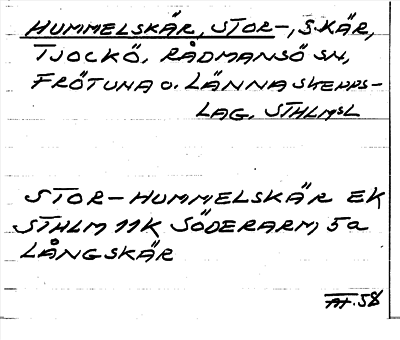 HUMMELSKÄR, STOR-, SKÄR,
TJOCKÖ, RÅDMANSÖ SN,
FRÖTUNA O. LÄNNA SKEPPS-
LAG. STHLMSL
STOR-HUMMELSKÄR EK
STHLM 11K SÖDERARM, 5a
LÅNGSKÄR
AF.58